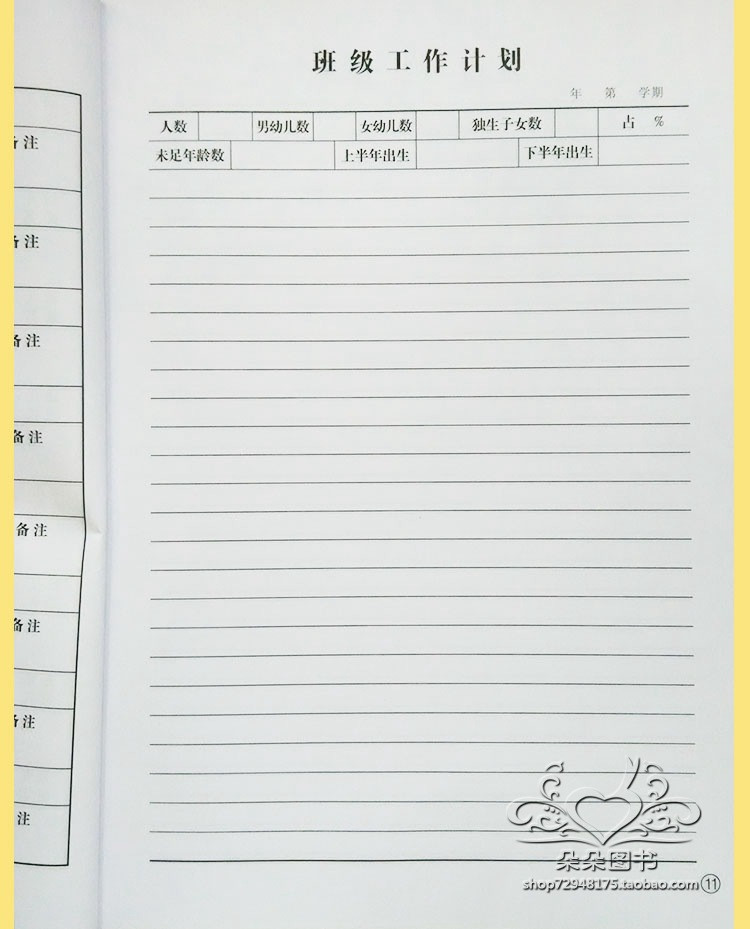 备注
备注
备注
备注
备注
备注
备注
注
班级工作计划
年 第 学期
人数 男幼儿数 女幼儿数 独生子女数 占 %
未足年龄数 上半年出生 下半年出生
朵朵图书
shop72948175.taobao.com
11